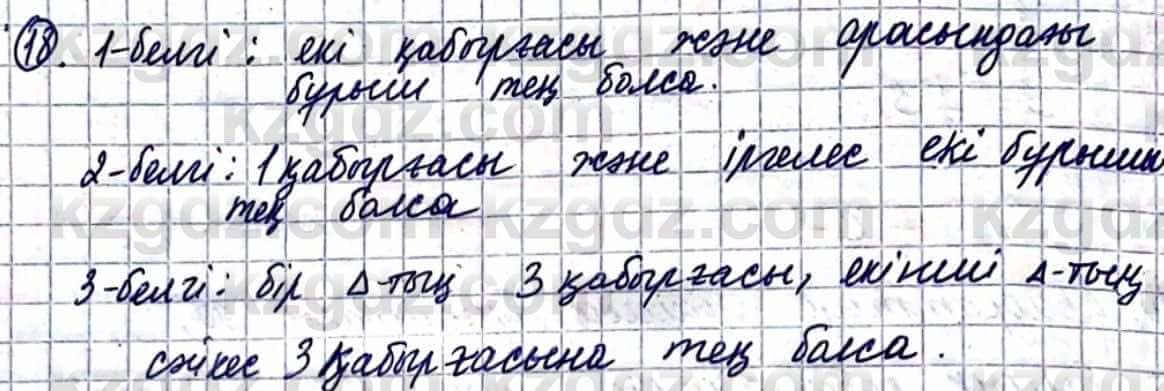 18. 1-белгі: екі қабырғасы және арасындағы
бұрыш тең болса.
2-белгі: 1 қабырғасы және іргелес екі бұрышы
тең болса
3-белгі: бір Δ-тың 3 қабырғасы, екінші Δ-тың
сәйкес 3 қабырғасына тең болса.